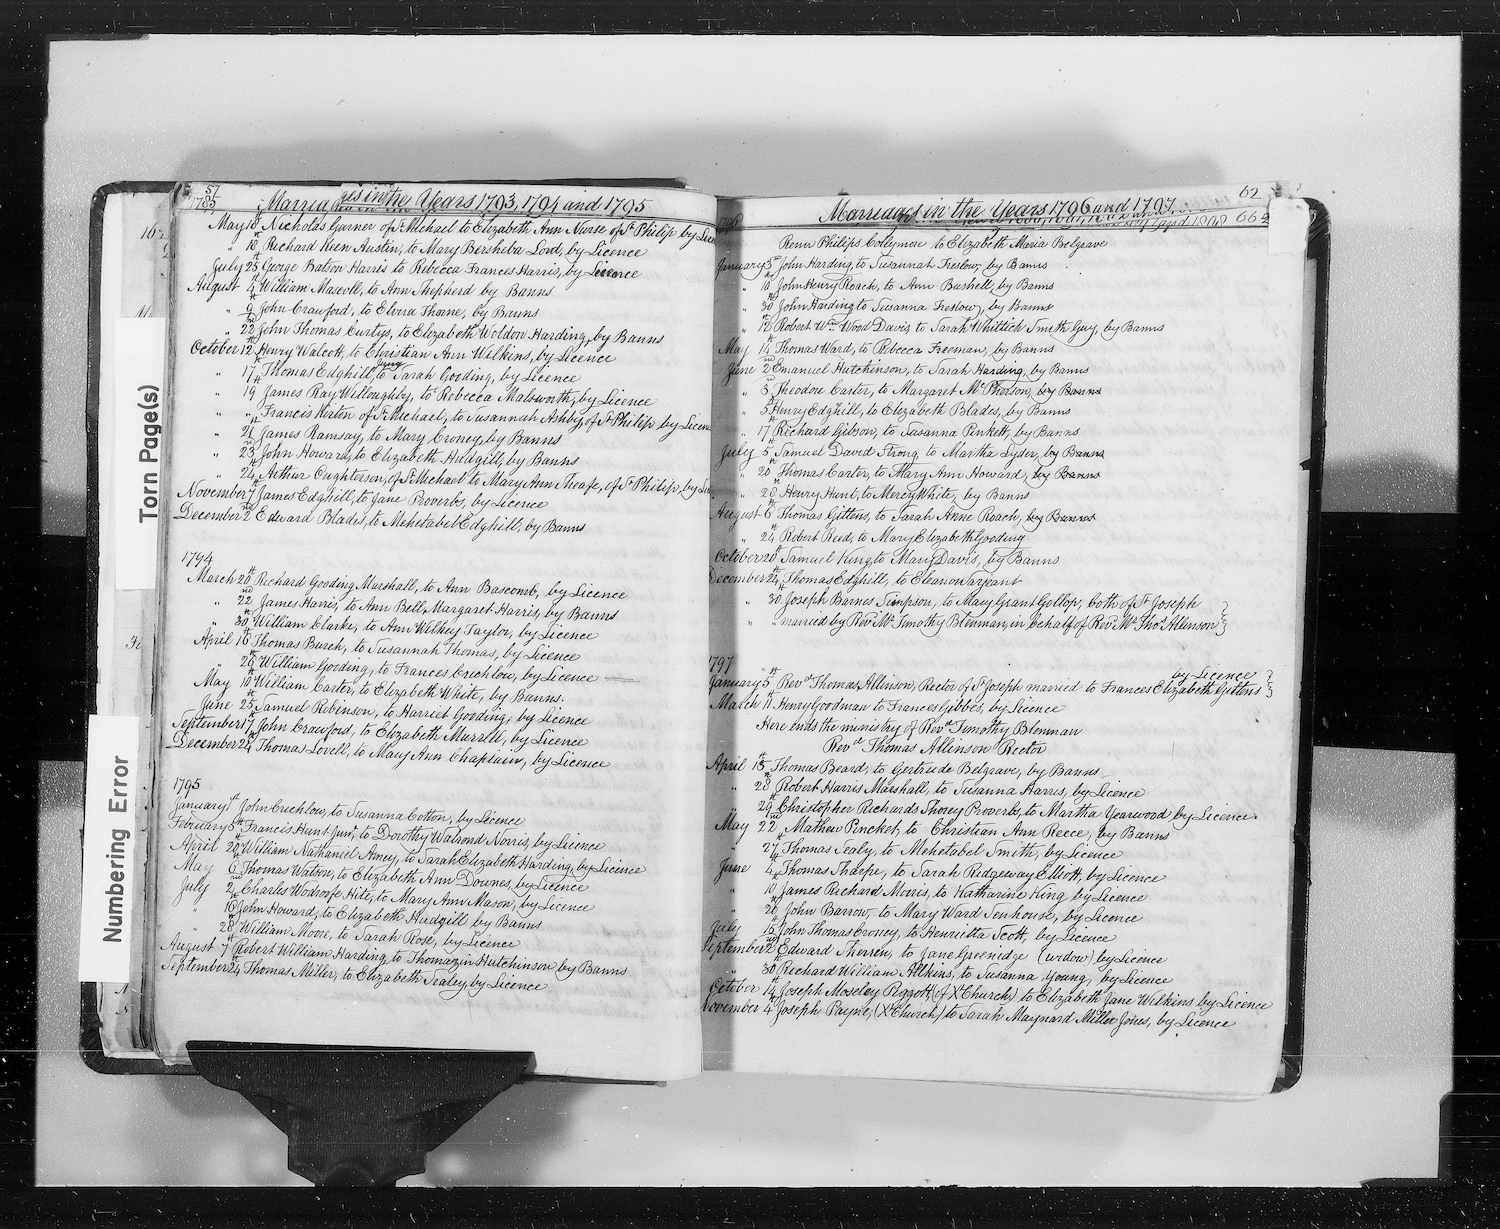 57
1785
Marriages in the Years 1793, 1794 and 1795
May 18 Nicholas Garner of St Michael to Elizabeth Ann Nurse of St Philip by Licen
" 18 Richard Keen Austin, to Mary Bersheba Lord, by Licence
July 25 George Batson Harris to Rebecca Frances Harris, by Licence
August 4 William Maxwell, to Ann Shepherd by Banns
" 9 John Crawford, to Elvira Thorne, by Banns
" 22 John Thomas Curtys, to Elizabeth Weldon Harding, by Banns
October 12 Henry Walcott, to Christian Ann Wilkins, by Licence
" 17 Thomas Edghill, Jung to Sarah Gooding, by Licence
" 19 James Ray Willoughby, to Rebecca Malsworth, by Licence
" " Francis Kirten of St Michael, to Susannah Ashby, of St Philip by Licen
" 21 James Ramsay, to Mary Croney, by Banns
" 23 John Howard, to Elizabeth Hudgill, by Banns
" 24 Arthur Oughterson, of St Michael to Mary Ann Sheafe, of St Philip, by Lic
November 7 James Edghill, to Jane Proverbs, by Licence
December 2 Edward Blades, to Mehetabel Edghill, by Banns
1794
March 20 Richard Gooding Marshall, to Ann Bascomb, by Licence
" 22 James Harris, to Ann Bell Margaret Harris, by Banns
" 30 William Clarke, to Ann Wilkey Taylor, by Licence
April 18 Thomas Burch, to Susannah Thomas, by Licence
" 26 William Gooding, to Frances Crichlow, by Licence
May 10 William Carter, to Elizabeth White, by Banns.
June 25 Samuel Robinson, to Harriet Gooding, by Licence
September 17 John Crawford, to Elizabeth Murrell, by Licence
December 24 Thomas Lovell, to Mary Ann Chaplain, by Licence
1795
January 1st John Crichlow, to Susanna Cotton, by Licence
February 5th Francis Hunt Junr, to Dorothy Walrond Norris, by Licence
April 20 William Nathaniel Amey, to Sarah Elizabeth Harding, by Licence
May 6 Thomas Watson, to Elizabeth Ann Downes, by Licence
July 2 Charles Wodroofe Hitz, to Mary Ann Mason, by Licence
" 16 John Howard, to Elizabeth Hudgill by Banns
" 28 William Moore, to Sarah Rose, by Licence
August 7 Robert William Harding to Thomazin Hutchinson by Banns
September 24 Thomas Miller, to Elizabeth Sealey, by Licence
62
Marriages in the Years 1796 and 1797
664
1796
Renn Philips Collymore to Elizabeth Maria Belgrave
January 3rd John Harding, to Susannah Freslow, by Banns
" 10 John Henry Roach, to Ann Bushell, by Banns
" 30 John Harding to Susanna Freslow, by Banns
" 12 Robert Wm Wood Davis, to Sarah Whittick Smith Guy, by Banns
May 14 Thomas Ward, to Rebecca Freeman, by Banns
June 2 Emanuel Hutchinson, to Sarah Harding, by Banns
" 3 Theodore Carter, to Margaret Mc Pherson, by Banns
" 5 Henry Edghill, to Elizabeth Blades, by Banns
" 17 Richard Gibson, to Susanna Pinkett, by Banns
July 5 Samuel David Strong, to Martha Lyder, by Banns
" 20 Thomas Carter, to Mary Ann Howard, by Banns
" 28 Henry Hunt, to Mercy White, by Banns
August 6 Thomas Gittens, to Sarah Anne Roach, by Banns
" 24 Robert Reed, to Mary Elizabeth Gooding
October 20 Samuel King, to Mary Davis, by Banns
December 24 Thomas Edghill, to Eleanor Sarjeant
" 30 Joseph Barnes Simpson, to Mary Grant Gollop, both of St Joseph
" " married by Revd Mr Timothy Blenman, in behalf of Revd Mr Thos Allinson
1797
by Licence
January 5 Revd Thomas Allinson, Rector of St Joseph married to Frances Elizabeth Gittens
March 11 Henry Goodman to Frances Gibbes, by Licence
Here ends the ministry of Revd Timothy Blenman
Revd Thomas Allinson Rector
April 15 Thomas Beard, to Gertrude Belgrave, by Banns
" 28 Robert Harris Marshall, to Susanna Harris, by Licence
" 29 Christopher Richards Thorey Proverbs, to Martha Yearwood by Licence.
May 22 Mathew Pincket, to Christian Ann Reece, by Banns
27 Thomas Sealy, to Mehetabel Smith, by Licence
June 4 Thomas Tharpe, to Sarah Ridgeway Elliott, by Licence
" 10 James Richard Morris, to Katharine King by Licence
" 20 John Barrow, to Mary Ward Senhouse, by Licence
July 16 John Thomas Croney, to Henrietta Scott, by Licence
September 2nd Edward Sherren, to Jane Greenidge (widow) by Licence
" 30 Richard William Atkins, to Susanna Young, by Licence
October 14 Joseph Moseley Piggott, (of Xt Church) to Elizabeth Jane Wilkins by Licence
November 4 Joseph Payne, (Xt Church) to Sarah Maynard Miller Jones, by Licence
Torn Page(s)
Numbering Error